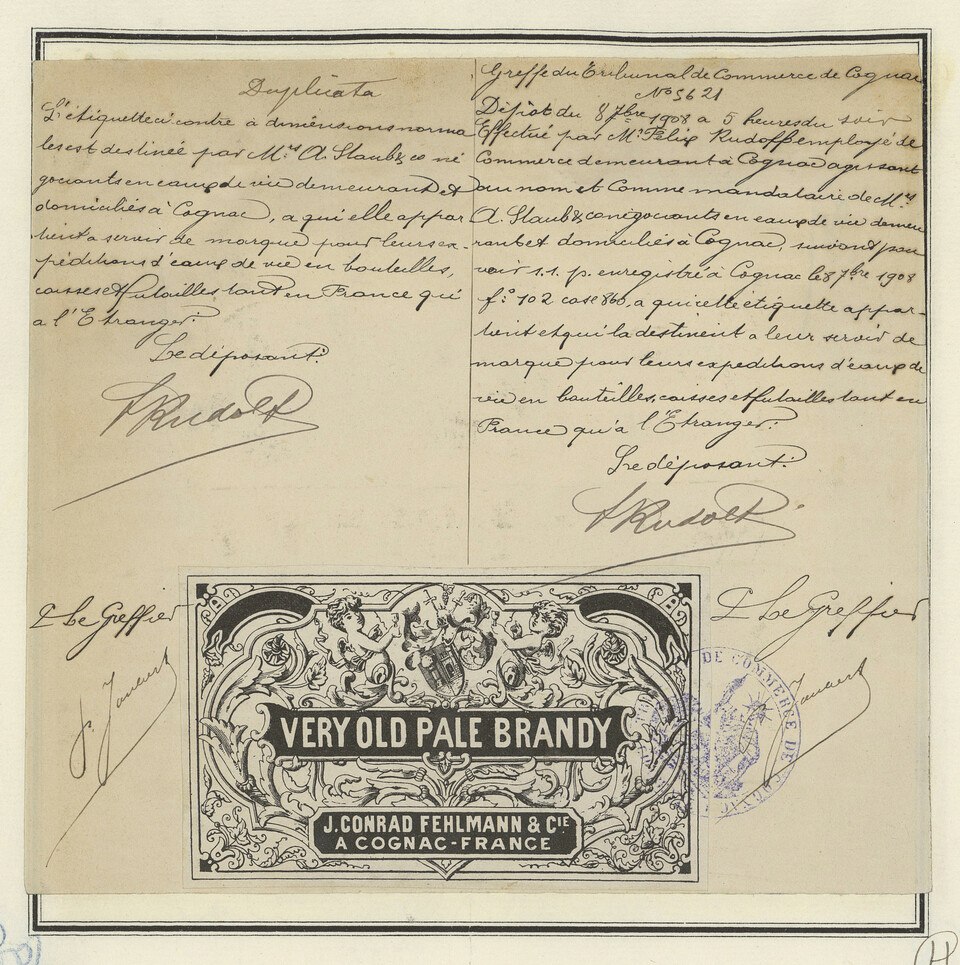 Duplicata
L'étiquette ci contre à dimensions norma
les est destinée par Mrs A. Staub & co né
gociants en eaux de vie demeurant et
domiciliés à Cognac, a qui elle appar
tient a servir de marque pour leurs ex-
péditions d'eaux de vie en bouteilles,
caisses et futailles tant en France qu'
a l'Etranger.
Le déposant:
Rudolf
P Le Greffier
Greffe du Tribunal de Commerce de Cognac
No 5621
Dépôt du 8 7bre 1908 a 5 heures du soir
Effectué par Mr Félix Rudolf employé de
Commerce demeurant à Cognac agissant
au nom et Comme mandataire de Mrs
A. Staub & co négociants en eaux de vie demeu
rant et domiciliés à Cognac, suivant pou
voir s.s. p. enregistré à Cognac le 8 7bre 1908
fo 102 case 860, a qui cette étiquette appar-
tient et qui la destinent a leur servir de
marque pour leurs expeditions d'eaux de
vie en bouteilles, caisses et futailles tant en
France qu'à l'Etranger.
Le déposant:
Rudolf
P Le Greffier
VERY OLD PALE BRANDY
J. CONRAD FEHLMANN & CIE
A COGNAC-FRANCE
DE COMMERCE DE COGNAC
H